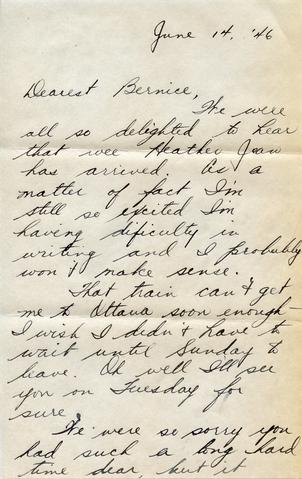 June 14, '46
Dearest Bernice,
We were
all so delighted to hear
that wee Heather Jean
has arrived. As a
matter of fact I'm
still so excited I'm
having dificulty in
writing and I probably
won't make sense.
That train can't get
me to Ottawa soon enough -
I wish I didn't have to
wait until Sunday to
leave. Oh well I'll see
you on Tuesday for
sure.
We were so sorry you
had such a long hard
time dear, but it